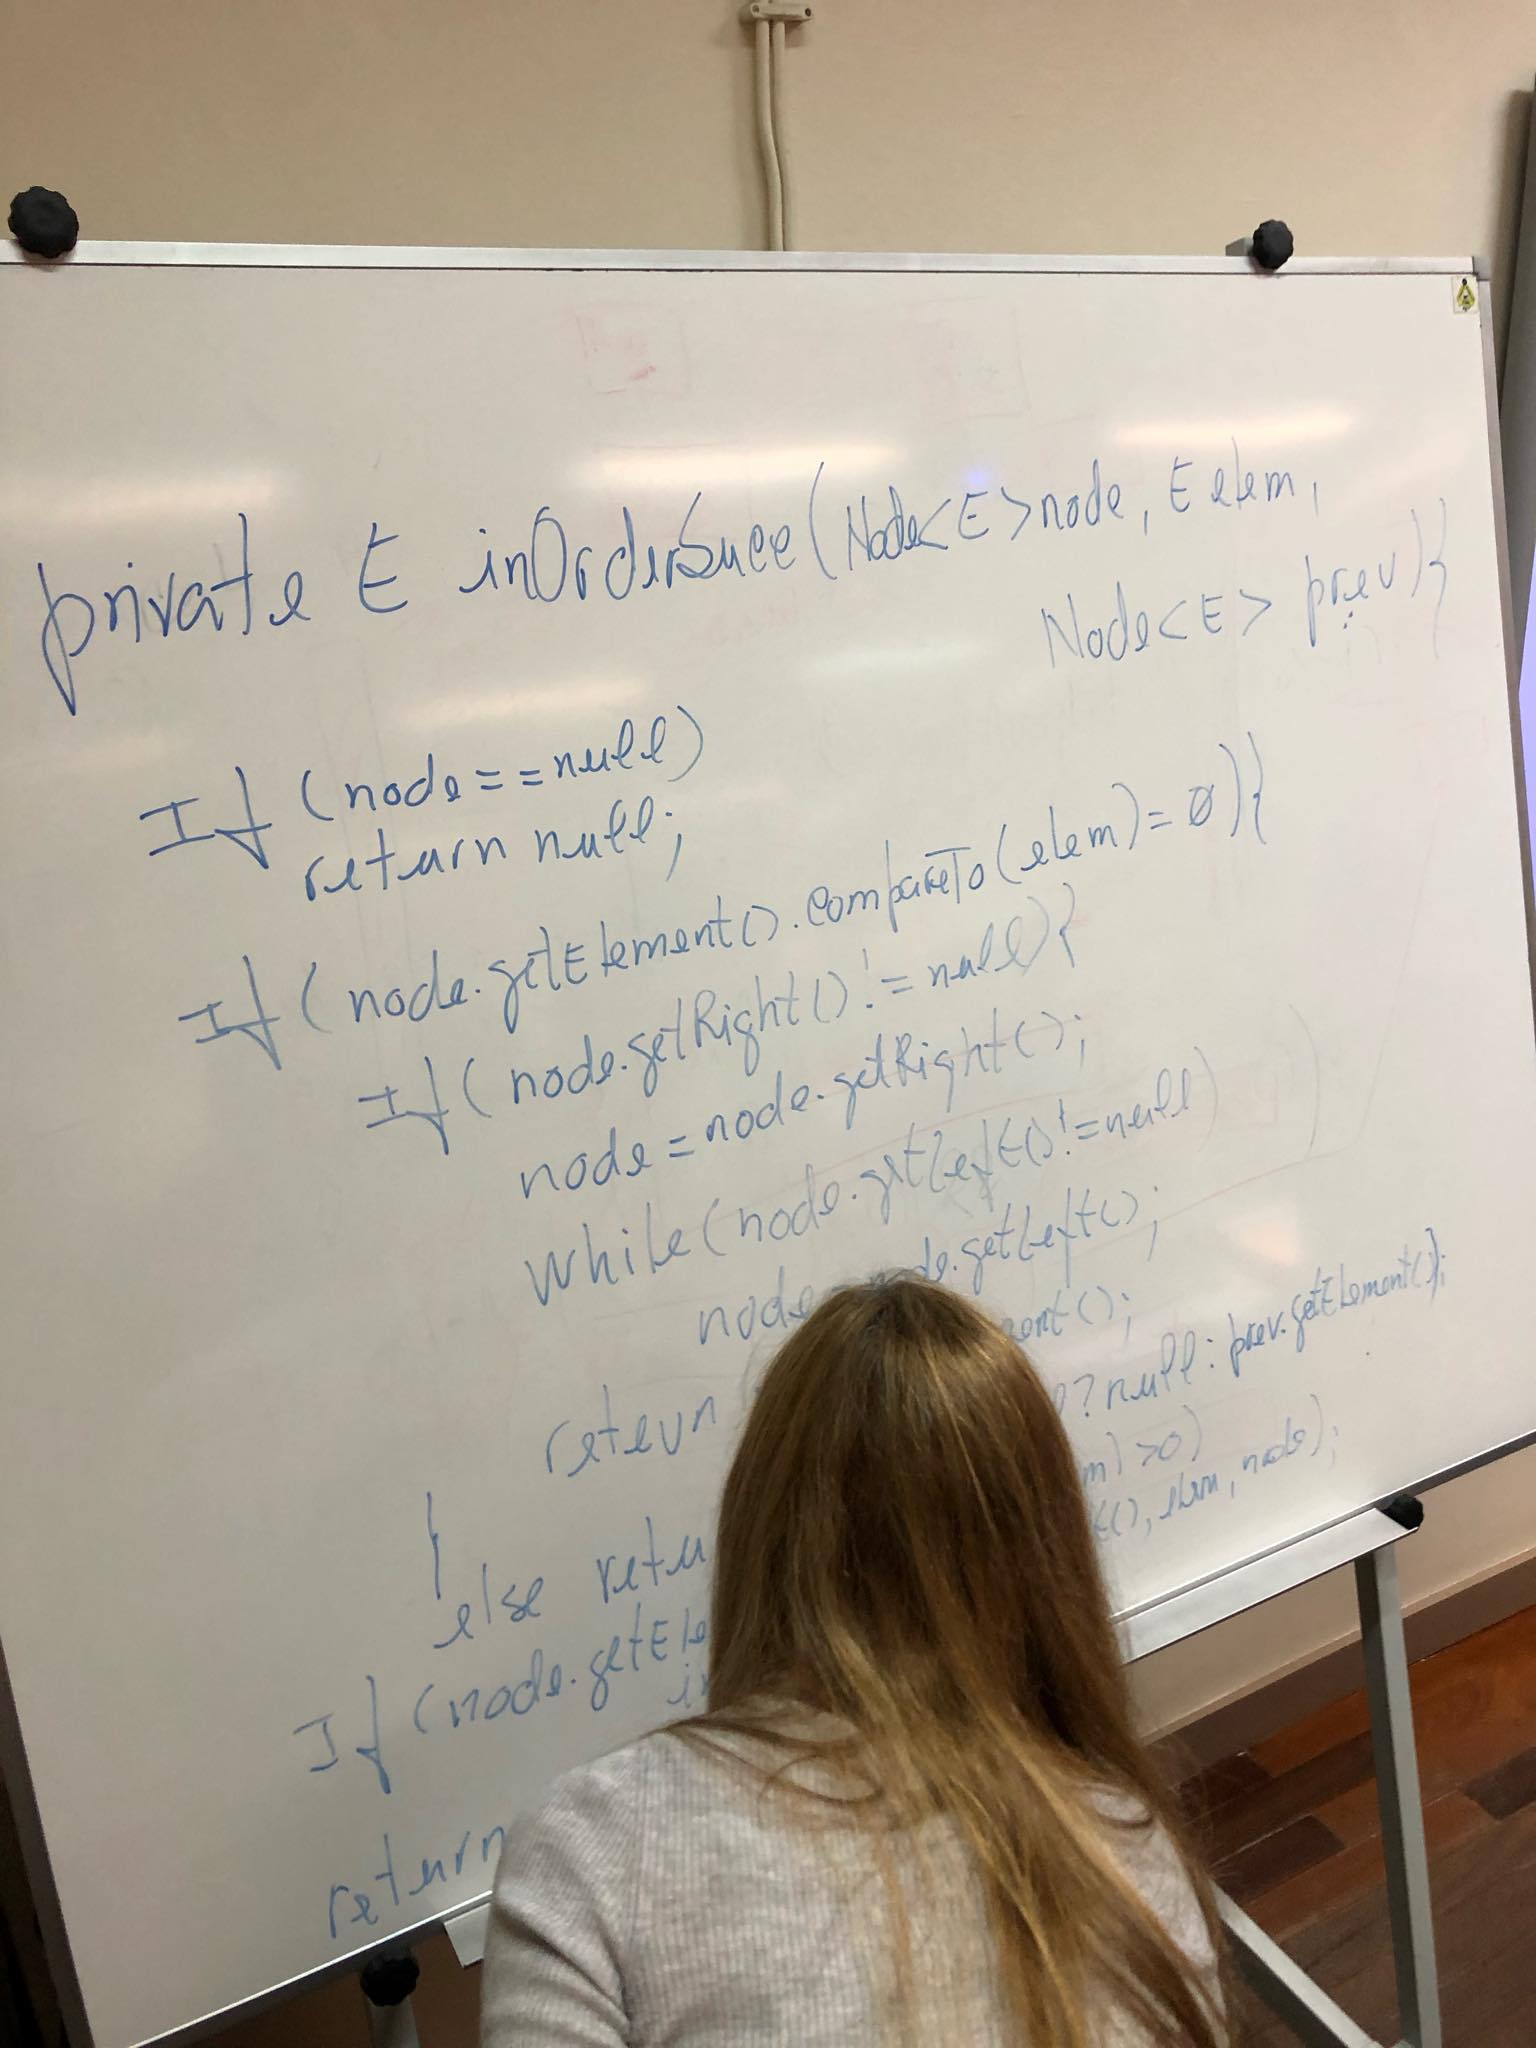 private E inOrderSucc(Node<E>node, E elem,
Node<E> prev){
If (node==null)
return null;
If (node.getElement().compareTo(elem)=0){
If (node.getRight()!=null){
node=node.getRight();
while(node.getLeft()!=null)
node getLeft();
return ();
}
else ?null:prev.getElement();
If (node. >0)
, elem, node);
return